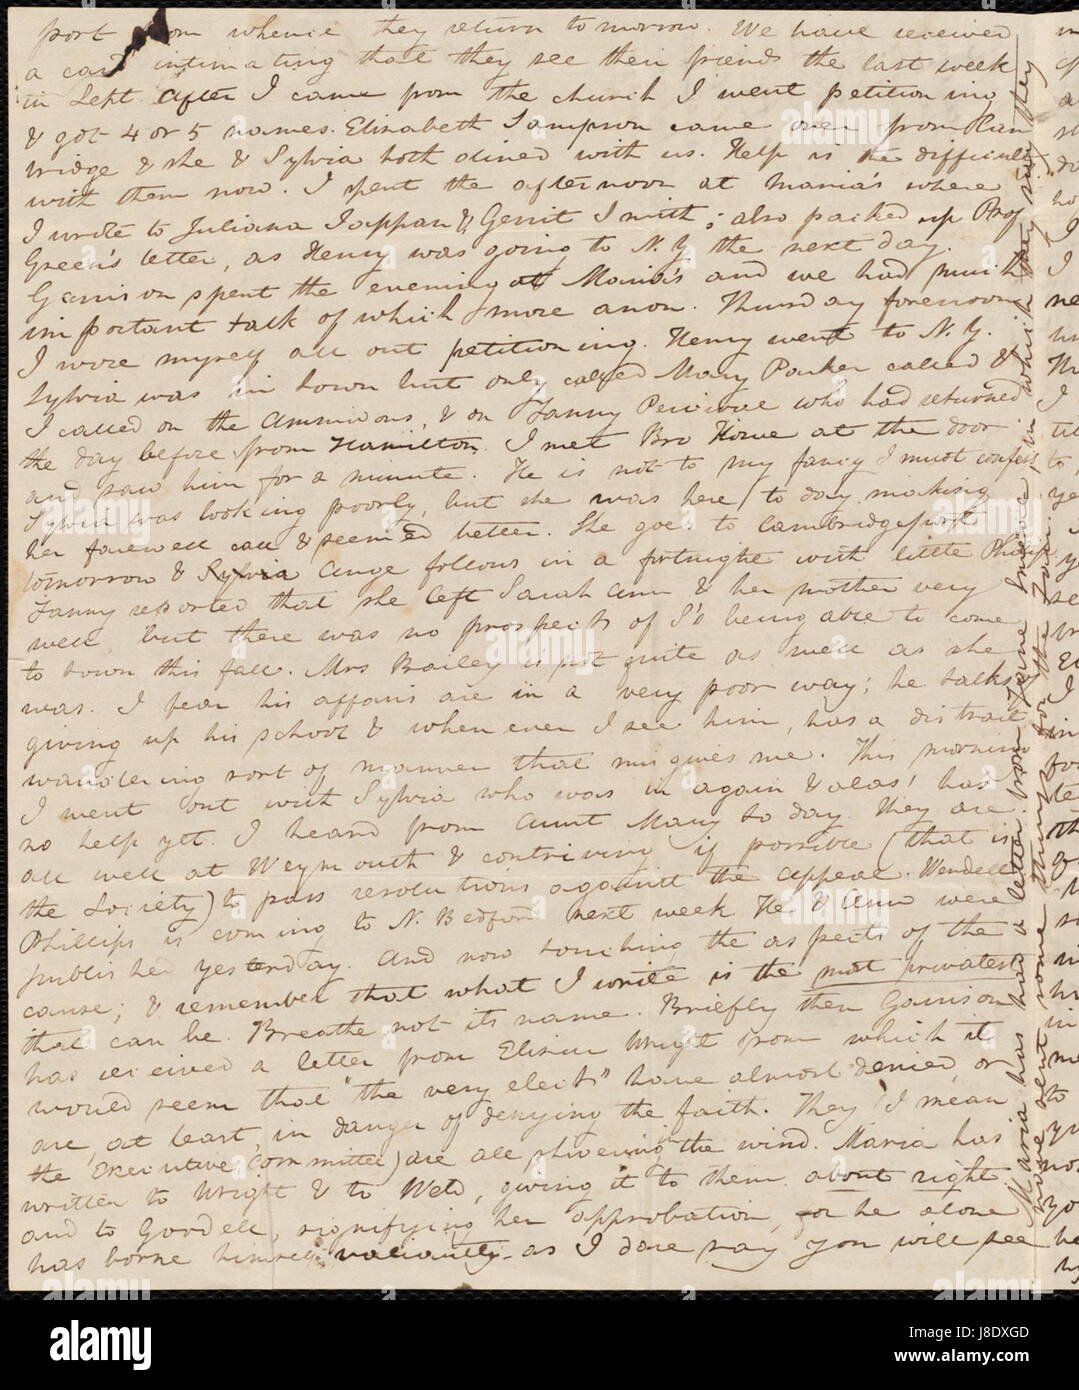 port from whence they return to morrow. We have received
a card intimating that they see their friends the last week
in Sept. After I came from the church I went petitioning
& got 4 or 5 names. Elizabeth Sampson came over from Cam
bridge & she & Sylvia both dined with us. Help is the difficulty
with them now. I spent the afternoon at Maria's where
I wrote to Juliana Tappan & Gerrit Smith; also packed up Prof
Green's letter, as Henry was going to N.Y. the next day.
Garrison spent the evening at Maria's and we had much
important talk of which more anon. Thursday forenoon
I wore myself all out petitioning. Henry went to N.Y.
Sylvia was in town but only called Mary Parker called &
I called on the Ammidons, & on Fanny who had returned
the day before from Hamilton. I met Bro Howe at the door
and saw him for a minute. He is not to my fancy I must confess
Sylvia was looking poorly, but she was here to day making
her farewell call & seemed better. She goes to Cambridgeport
tomorrow & Sylvia Ange follows in a fortnight with little Philip
Fanny reported that she left Sarah Ann & her mother very
well, but there was no prospects of S's being able to come
to town this fall. Mrs Bailey is not quite as well as she
was. I fear his affairs are in a very poor way; he talks of
giving up his school & whenever I see him, has a distrait
wandering sort of manner that misgives me. This morning
I went out with Sylvia who was in again & alas! has
no help yet. I heard from Aunt Mary to day. They are
all well at Weymouth & contriving if possible (that is
the Society) to pass resolutions against the Appeal. Wendell
Phillips is coming to N. Bedford next week. He & Ann were
published yesterday. And now touching the aspects of the
cause; & remember that what I write is the most privatest
that can be. Breathe not its name. Briefly then Garrison
has received a letter from Elizur Wright from which it
would seem that "the very elect" have almost denied, or
are, at least, in danger of denying the faith. They (I mean
the Executive Committee) are all shivering in the wind. Maria has
written to Wright & to Weld, giving it to them about right
and to Goodell, signifying her approbation, for he alone
has borne himself valiantly - as I dare say you will see
Maria has had a letter from Jane in which they say they
have sent some things for the Fair.
alamy
Image ID: J8DXGD
www.alamy.com